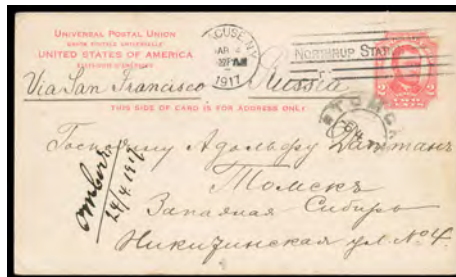 UNIVERSAL POSTAL UNION
UNION POSTALE UNIVERSELLE
UNITED STATES OF AMERICA
ÉTATS-UNIS D'AMÉRIQUE
CUSE, N.Y.
1917
NORTHRUP STAR
2 2
Via San Francisco Russia
THIS SIDE OF CARD IS FOR ADDRESS ONLY
ТОМСК
Господину Адольфу Даттанъ
Томскъ
Западная Сибирь
Никитинская ул. № 4.
24/4. 1917